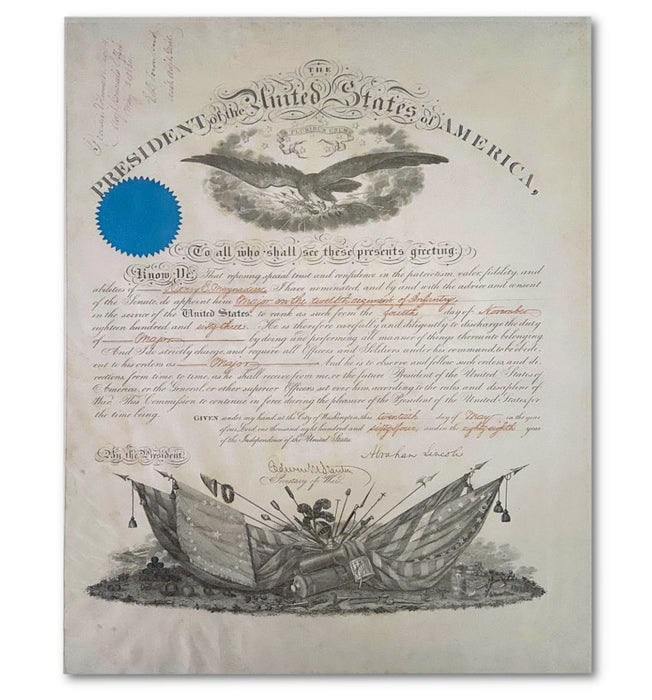 THE
PRESIDENT of the United States of AMERICA,
E PLURIBUS UNUM
To all who shall see these presents greeting:
Know Ye, That reposing special trust and confidence in the patriotism, valor, fidelity, and
abilities of Henry E. Maynadier I have nominated, and by and with the advice and consent
of the Senate, do appoint him Major in the twelfth regiment of Infantry
in the service of the United States: to rank as such from the fourth day of November
eighteen hundred and sixty three. He is therefore carefully and diligently to discharge the duty
of Major by doing and performing all manner of things thereunto belonging
And I do strictly charge, and require all Officers and Soldiers under his command, to be obedi-
ent to his orders as Major And he is to observe and follow such orders, and di-
rections from time to time, as he shall receive from me, or the future President of the United States of
America, or the General, or other superior Officers set over him, according to the rules and discipline of
War. This Commission to continue in force during the pleasure of the President of the United States, for
the time being.
GIVEN under my hand, at the City of Washington, this twentieth day of May in the year
of our Lord, one thousand eight hundred and sixty four, and in the eighty eighth year
of the Independence of the United States.
By the President,
Abraham Lincoln
Edwin M Stanton
Secretary of War.